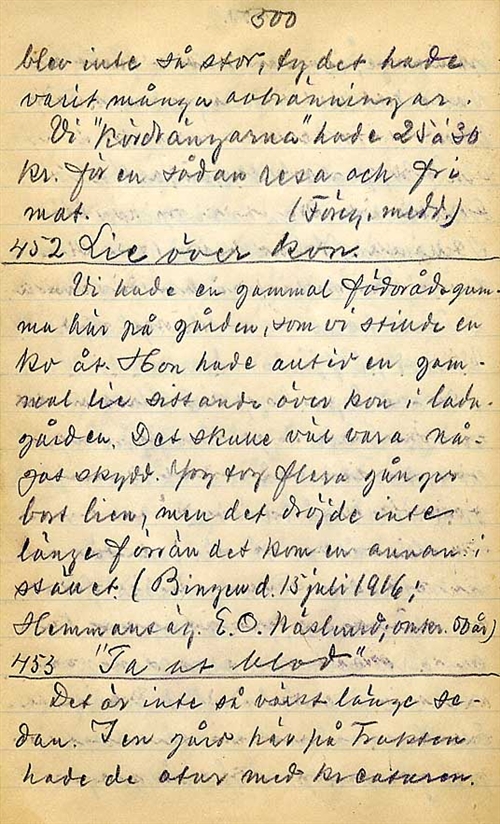 300
blev inte så stor, ty det hade
varit många avbränningar.
Vi "kördrängarna" hade 25 à 30
kr. för en sådan resa och fri
mat. (Föreg. medd.)
452 Lie över kon.
Vi hade en gammal födorådsgum-
ma här på gården, som vi stinde en
ko åt. Hon hade antid en gam-
mal lie sittande över kon i ladu-
gården. Det skulle väl vara nå-
got skydd. Jag tog flera gånger
bort lien, men det dröjde inte
länge förrän det kom en annan i
stället. (Bingen d. 15 juli 1916;
Hemmansäg. E. O. Näslund; omkr. 50 år)
453 "Ta ut blod"
Det är inte så värst länge se-
dan. I en gård här på Trakten
hade de otur med kreaturen.